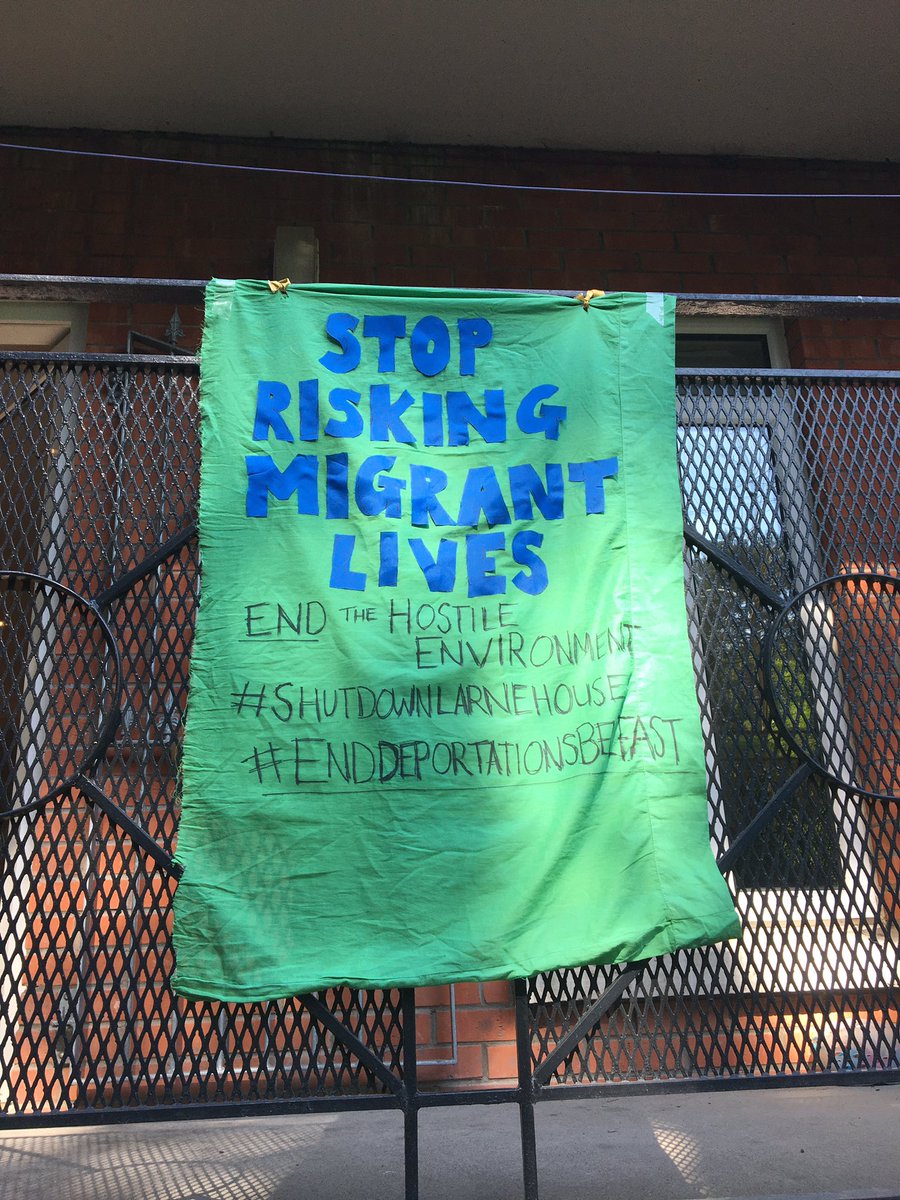 STOP
RISKING
MIGRANT
LIVES
END THE HOSTILE
ENVIRONMENT
#SHUTDOWNLARNEHOUSE
#ENDDEPORTATIONSBEFAST